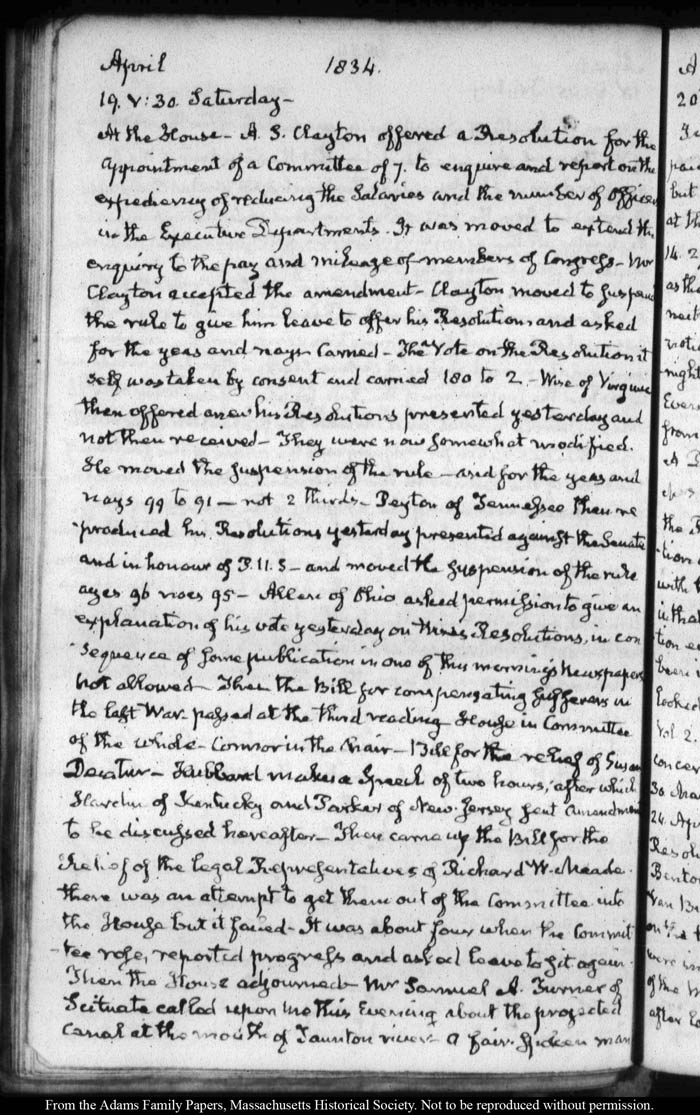 April 1834.
19. V:30. Saturday-
At the House- A. S. Clayton offered a Resolution for the
appointment of a Committee of 7. to enquire and report on the
expediency of reducing the Salaries and the number of Officers
in the Executive Departments. It was moved to extend the
enquiry to the pay and mileage of members of Congress- Mr
Clayton accepted the amendment- Clayton moved to suspend
the rule to give him leave to offer his Resolution and asked
for the yeas and nays- Carried- The Vote on the Resolution it
self was taken by consent and carried 180 to 2.- Wise of Virginia
then offered anew his Resolutions presented yesterday and
not then received- They were now somewhat modified.
He moved the suspension of the rule- and for the yeas and
nays 99 to 91- not 2 thirds- Peyton of Tennessee then re
-produced his Resolutions yesterday presented against the Senate
and in honour of- and moved the suspension of the rule
ayes 96 noes 95- Allen of Ohio asked permission to give an
explanation of his vote yesterday on Resolutions, in con
-sequence of some publication in one of this morning's Newspapers
not allowed- Then the Bill for compensating sufferers in
the last War passed at the third reading- House in Committee
of the whole- Connor in the Chair- Bill for the relief of Susan
Decatur- Hubbard makes a Speech of two hours, after which
Hardin of Kentucky and Parker of New-Jersey sent amendments
to be discussed hereafter- Then came up the Bill for the
Relief of the legal Representatives of Richard W. Meade.
there was an attempt to get them out of the Committee into
the House but it failed- It was about four when the Commit
-tee rose, reported progress and asked leave to sit again.
Then the House adjourned- Mr Samuel A. Turner of
Scituate called upon me this Evening about the projected
canal at the mouth of Taunton river- a fair-spoken man
From the Adams Family Papers, Massachusetts Historical Society. Not to be reproduced without permission.